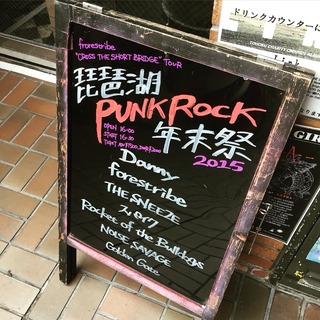 frorestribe
"CROSS THE SHORT BRIDGE" TOUR
琵琶湖
PUNK ROCK
年末祭
2015
OPEN 16:00
START 16:30
Danny
forestribe
THE SNEEZE
Rocket of the Bulldogs
NOISE SAVAGE
Golden Gate
ドリンクカウンターに